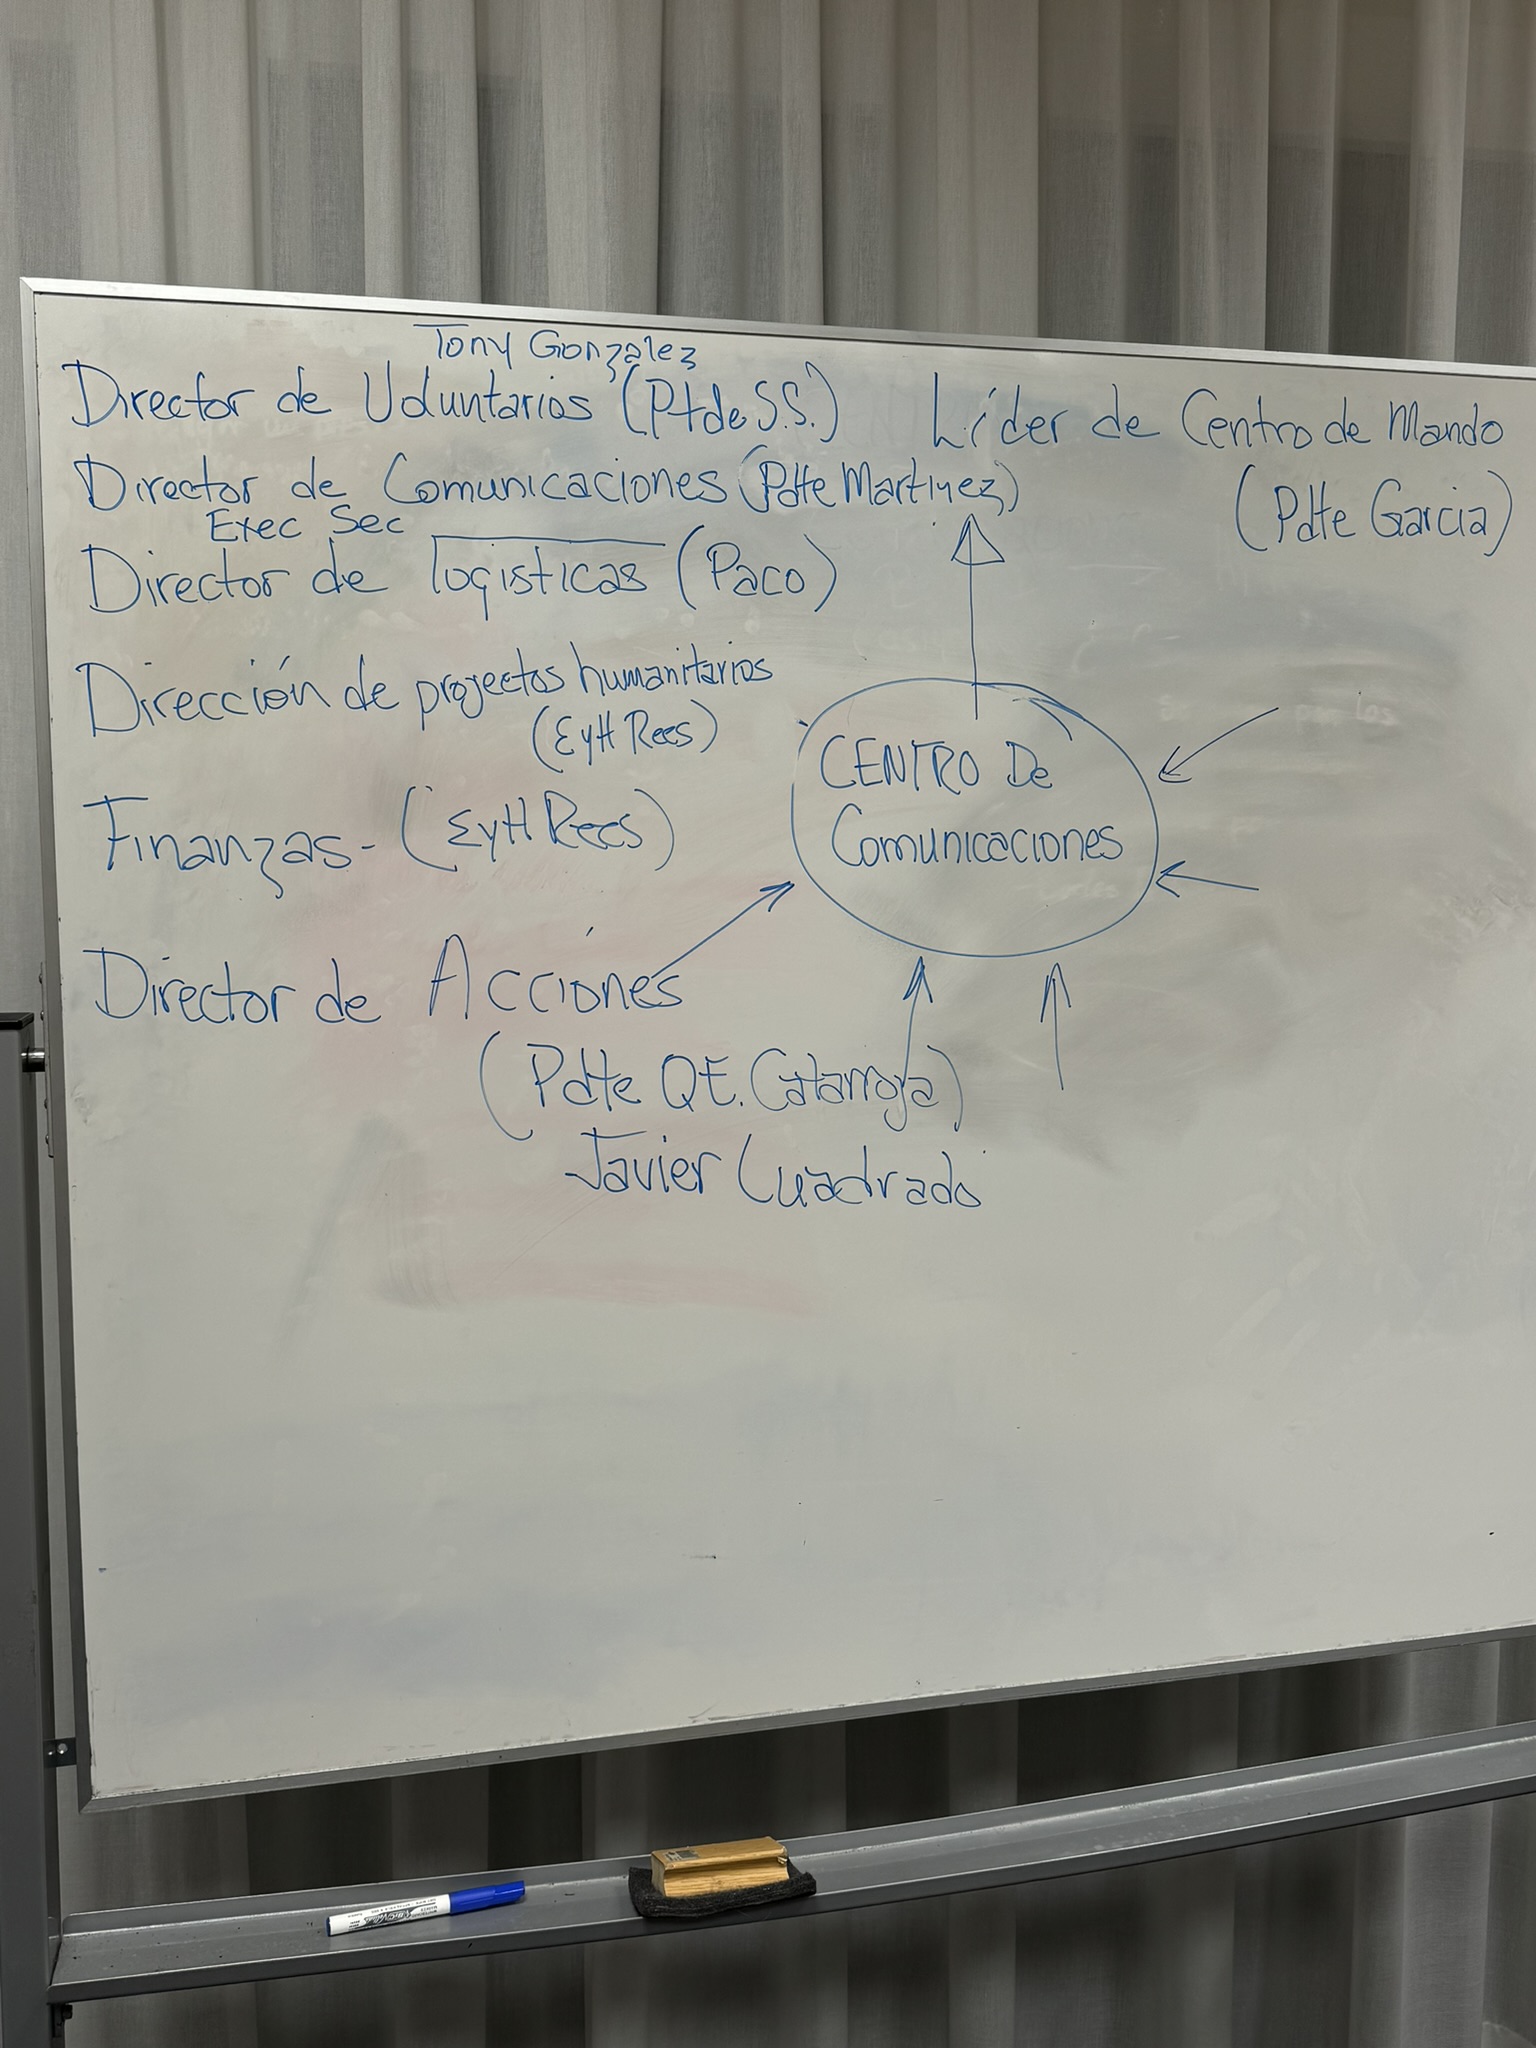 Tony González
Director de Voluntarios (Ptde S.S.)
Líder de Centro de Mando
(Pdte Garcia)
Director de Comunicaciones (Pdte Martinez)
Exec Sec
Director de logisticas (Paco)
Dirección de projectos humanitarios
(EyH Rees)
Finanzas - (EyH Rees)
CENTRO De
Comunicaciones
Director de Acciones
(Pdte QE. Catarroja)
Javier Cuadrado